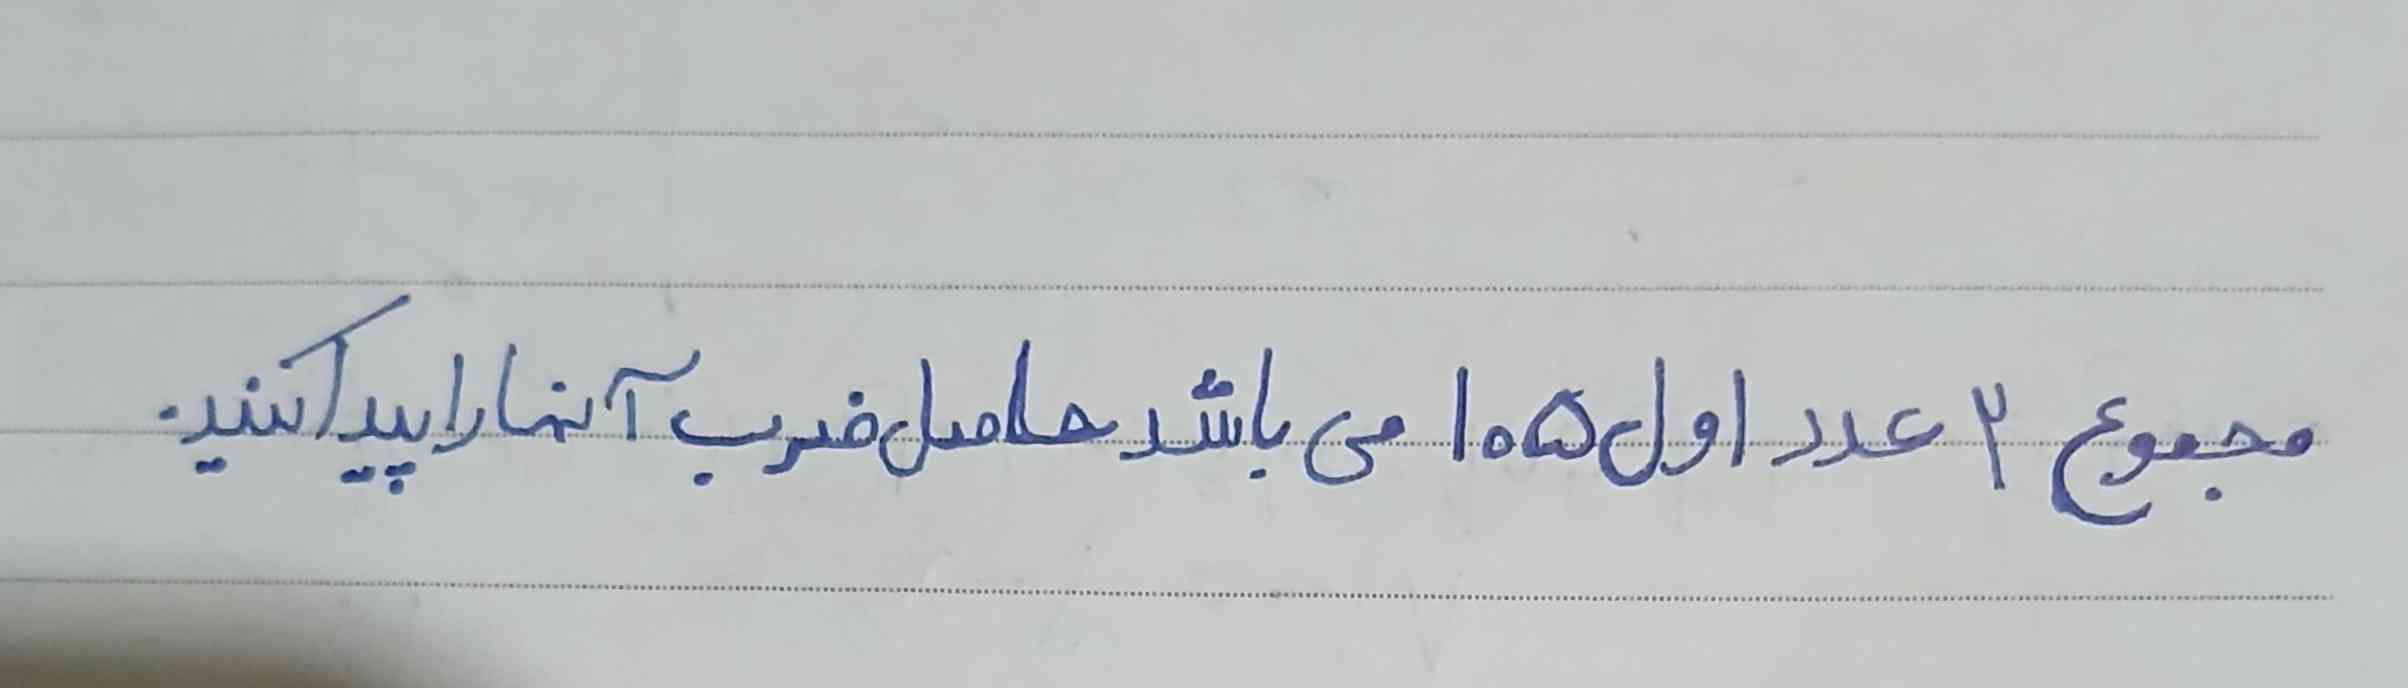 مجموع ۲ عدد اول ۱۰۵ می باشد حاصل ضرب آنها را پیدا کنید.